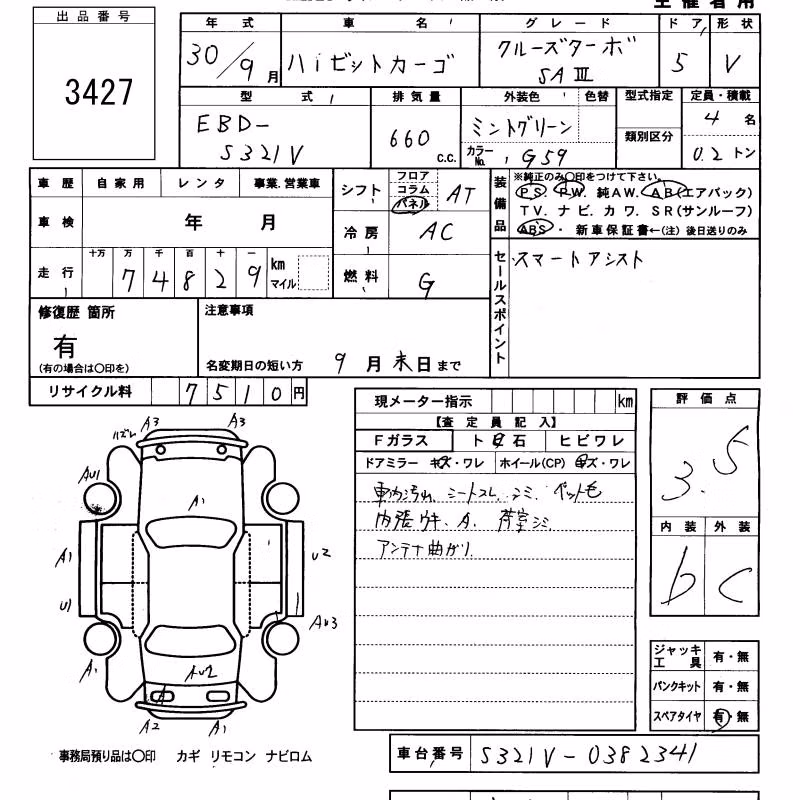 主催者用
出品番号
3427
年式 車名 グレード ドア 形状
30/9月 ハイゼットカーゴ クルーズターボ SAⅢ 5 V
型式 排気量 外装色 色替 型式指定 定員・積載
EBD-S321V 660 C.C. ミントグリーン 4名
カラーNo. G59 類別区分 0.2トン
車歴 自家用 レンタ 事業.営業車
シフト フロア コラム パネル AT
装備品 ※純正のみ○印をつけて下さい。
P.S. P.W. 純AW. AB(エアバック)
TV. ナビ. カワ. SR(サンルーフ)
ABS. 新車保証書←(注)後日送りのみ
車検 年 月
冷房 AC
走行 十万 万 千 百 十 一
7 4 8 2 9 km マイル
燃料 G
セールスポイント スマートアシスト
修復歴 箇所
有
(有の場合は○印を)
注意事項
名変期日の短い方 9月末日まで
リサイクル料 7510円
現メーター指示 km
【査定員記入】
Fガラス ト石 ヒビワレ
ドアミラー キズ・ワレ ホイール(CP) キズ・ワレ
車内汚れ シートスレ、シミ ペット毛
内張ウキ、A. 荷室シミ
アンテナ曲がり
評価点
3.5
内装 外装
b C
ハズレ A3 A3
AU1
A1
A1 U2
U1 AU3
A1 AU2
A
A2 A1
ジャッキ工具 有・無
パンクキット 有・無
スペアタイヤ 有・無
事務局預り品は○印 カギ リモコン ナビロム
車台番号 S321V-0382341